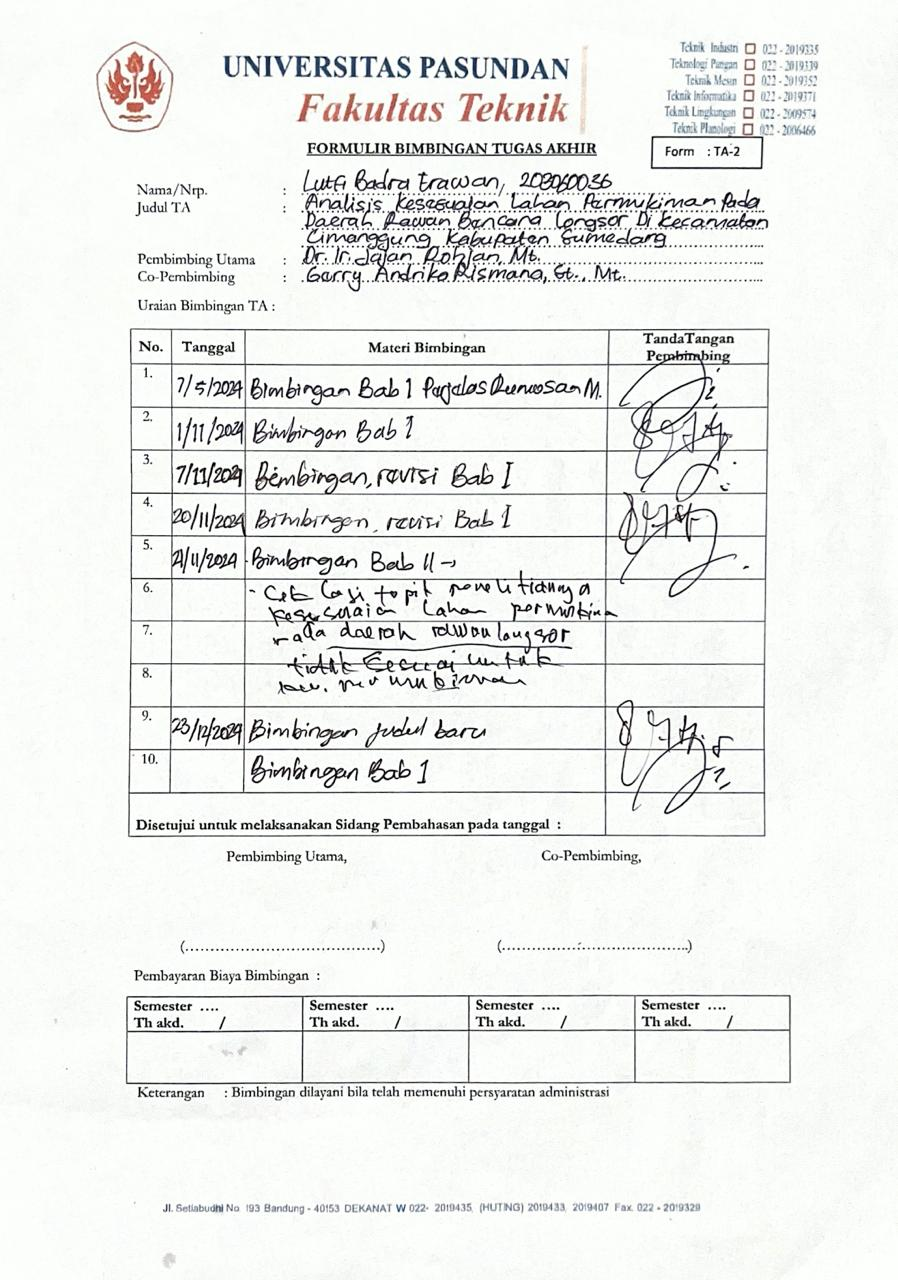 UNIVERSITAS PASUNDAN
Fakultas Teknik
Teknik Industri 022 - 2019335
Teknologi Pangan 022 - 2019339
Teknik Mesin 022 - 2019352
Teknik Informatika 022 - 2019371
Teknik Lingkungan 022 - 2009574
Teknik Planologi 022 - 2006466
FORMULIR BIMBINGAN TUGAS AKHIR
Form : TA-2
Nama/Nrp. : Lutfi Badra Erawan, 203060036
Judul TA : Analisis Kesesuaian Lahan Permukiman Pada
Daerah Rawan Bencana Longsor Di Kecamatan
Cimanggung Kabupaten Sumedang
Pembimbing Utama : Dr. Ir. Jajan Rohjan, Mt.
Co-Pembimbing : Garry Andrika Rismana, St., Mt.
Uraian Bimbingan TA :
No. Tanggal Materi Bimbingan TandaTangan
Pembimbing
1. 7/5/2024 Bimbingan Bab 1 Perjelas Rumusan M.
2. 1/11/2024 Bimbingan Bab I
3. 7/11/2024 Bimbingan, revisi Bab I
4. 20/11/2024 Bimbingan, revisi Bab I
5. 21/11/2024 Bimbingan Bab II →
6. - Cek lagi topik penelitiannya
kesesuaian lahan permukiman
7. pada daerah rawan longsor
tidak sesuai untuk
8.
9. 23/12/2024 Bimbingan Judul baru
10. Bimbingan Bab 1
Disetujui untuk melaksanakan Sidang Pembahasan pada tanggal :
Pembimbing Utama, Co-Pembimbing,
(....................................) (....................................)
Pembayaran Biaya Bimbingan :
Semester .... Semester .... Semester .... Semester ....
Th akd. / Th akd. / Th akd. / Th akd. /
Keterangan : Bimbingan dilayani bila telah memenuhi persyaratan administrasi
Jl. Setiabudhi No. 193 Bandung - 40153 DEKANAT W 022- 2019435, (HUTING) 2019433, 2019407 Fax. 022 - 2019329